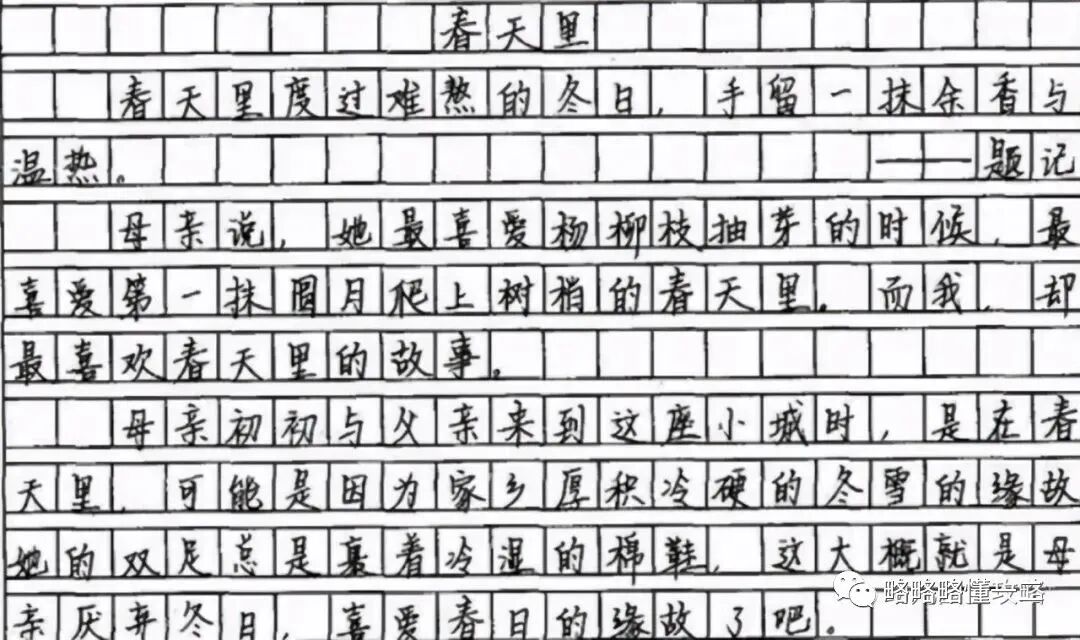 春天里
春天里度过难熬的冬日，手留一抹余香与
温热。 ——题记
母亲说，她最喜爱杨柳枝抽芽的时候，最
喜爱第一抹圆月爬上树梢的春天里。而我，却
最喜欢春天里的故事。
母亲初初与父亲来到这座小城时，是在春
天里，可能是因为家乡厚积冷硬的冬雪的缘故
她的双足总是裹着冷湿的棉鞋，这大概就是母
亲厌弃冬日，喜爱春日的缘故了吧。
略略略懂攻略